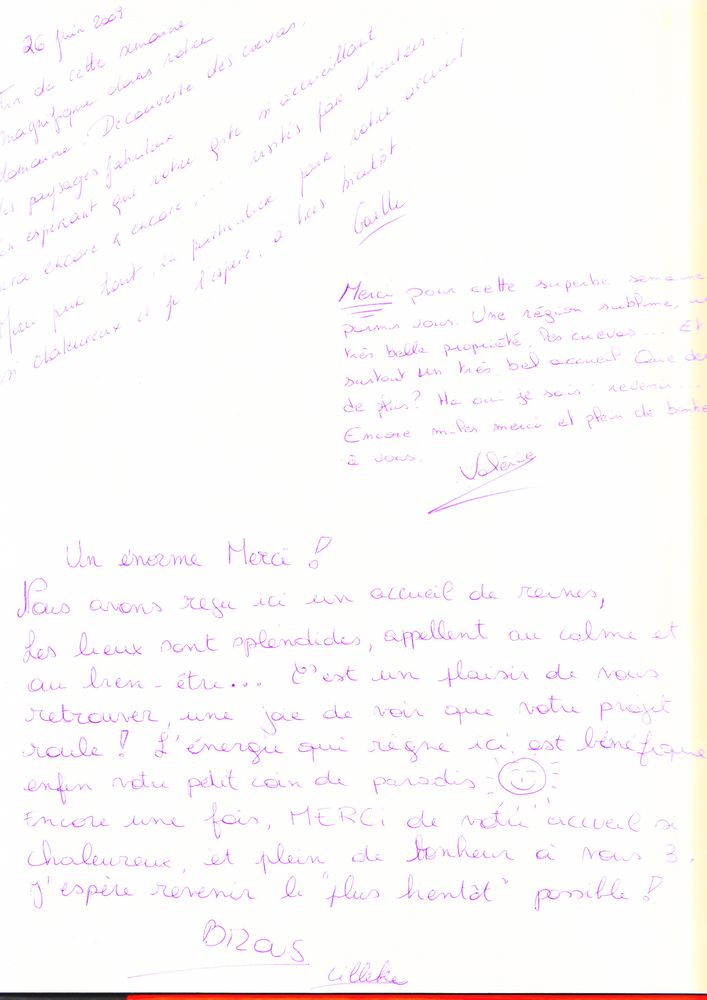 26 Juin 2009
Fin de cette semaine
magnifique dans votre
domaine. Découverte des cuevas.
des paysages fabuleux
En espérant que votre gîte si accueillant
sera encore & encore, ... visités par d'autres...
Merci pour tout, en particulier pour votre accueil
si chaleureux et je l'espère, à très bientôt.
Gaëlle
Merci pour cette superbe semaine
parmi vous. Une région sublime,
très belle propriété, les cuevas... Et
surtout un très bel accueil Que
de plus? Ha oui je sais : revenir...
Encore milles merci et plein de
à vous.
Valérie
Un énorme Merci !
Nous avons reçu ici un accueil de reines,
Les lieux sont splendides, appellent au calme et
au bien-être... C'est un plaisir de vous
retrouver, une joie de voir que votre projet
roule ! L'énergie qui règne ici est bénéfique
enfin votre petit coin de paradis
Encore une fois, MERCi de votre accueil si
chaleureux, et plein de bonheur à vous 3.
J'espère revenir le "plus bientôt" possible !
Bizous